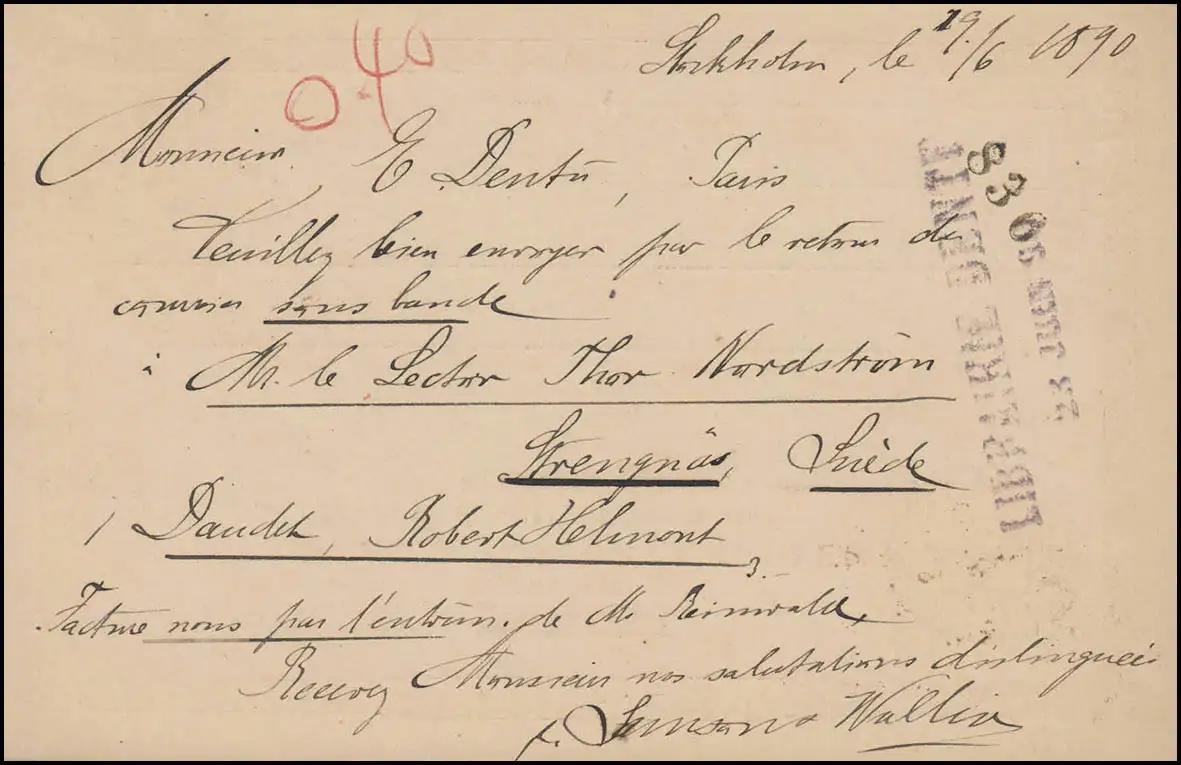 0.40
Stockholm, le 19/6 1890
Monsieur E Dentu, Paris
Veuillez bien envoyer par le retour de
courrier sous bande
à Mr. le Lector Thor Nordström
Strengnäs, Suède
1 Daudet, Robert Helmont
3.
Facture nous par l'entrem. de M. Reinwald,
Recevez Monsieur nos salutations distinguées
f. Samson & Wallin
LIBRAIRIE DENTU
23 JUIN 90
83